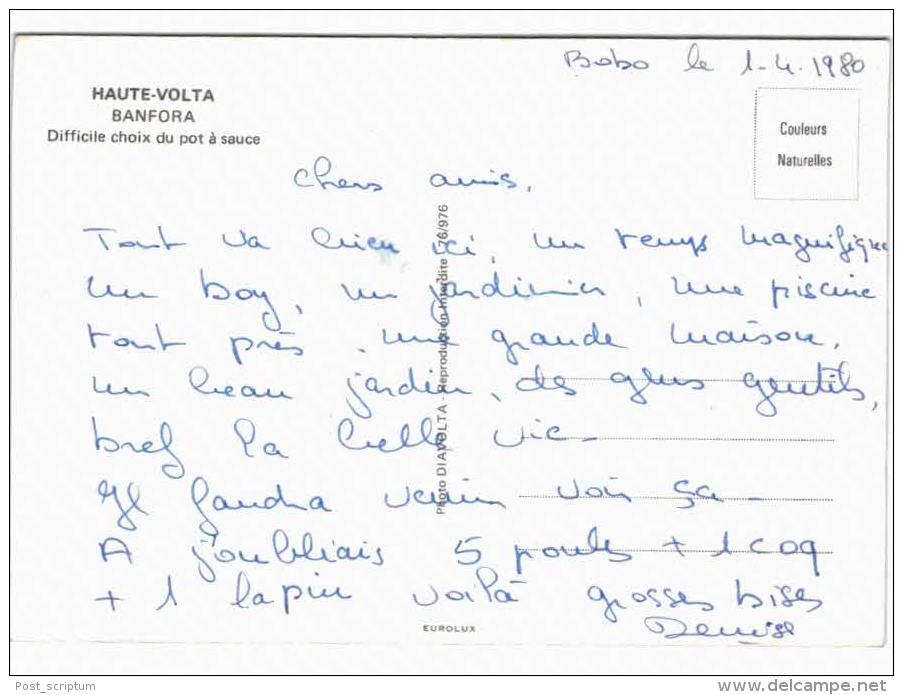 Bobo le 1-4.1980
HAUTE-VOLTA
BANFORA
Difficile choix du pot à sauce
Couleurs
Naturelles
Chers amis,
Tout va bien ici, un temps magnifique
un boy, un jardinier, une piscine
tout près, une grande maison,
un beau jardin, des gens gentils,
bref la belle vie -
Il faudra venir voir ça -
A j'oubliais 5 poules + 1 coq
+ 1 lapin voilà grosses bises
Denise
Photo DIAVOLTA - Reproduction Interdite 76/976
EUROLUX
Post_scriptum
www.delcampe.net